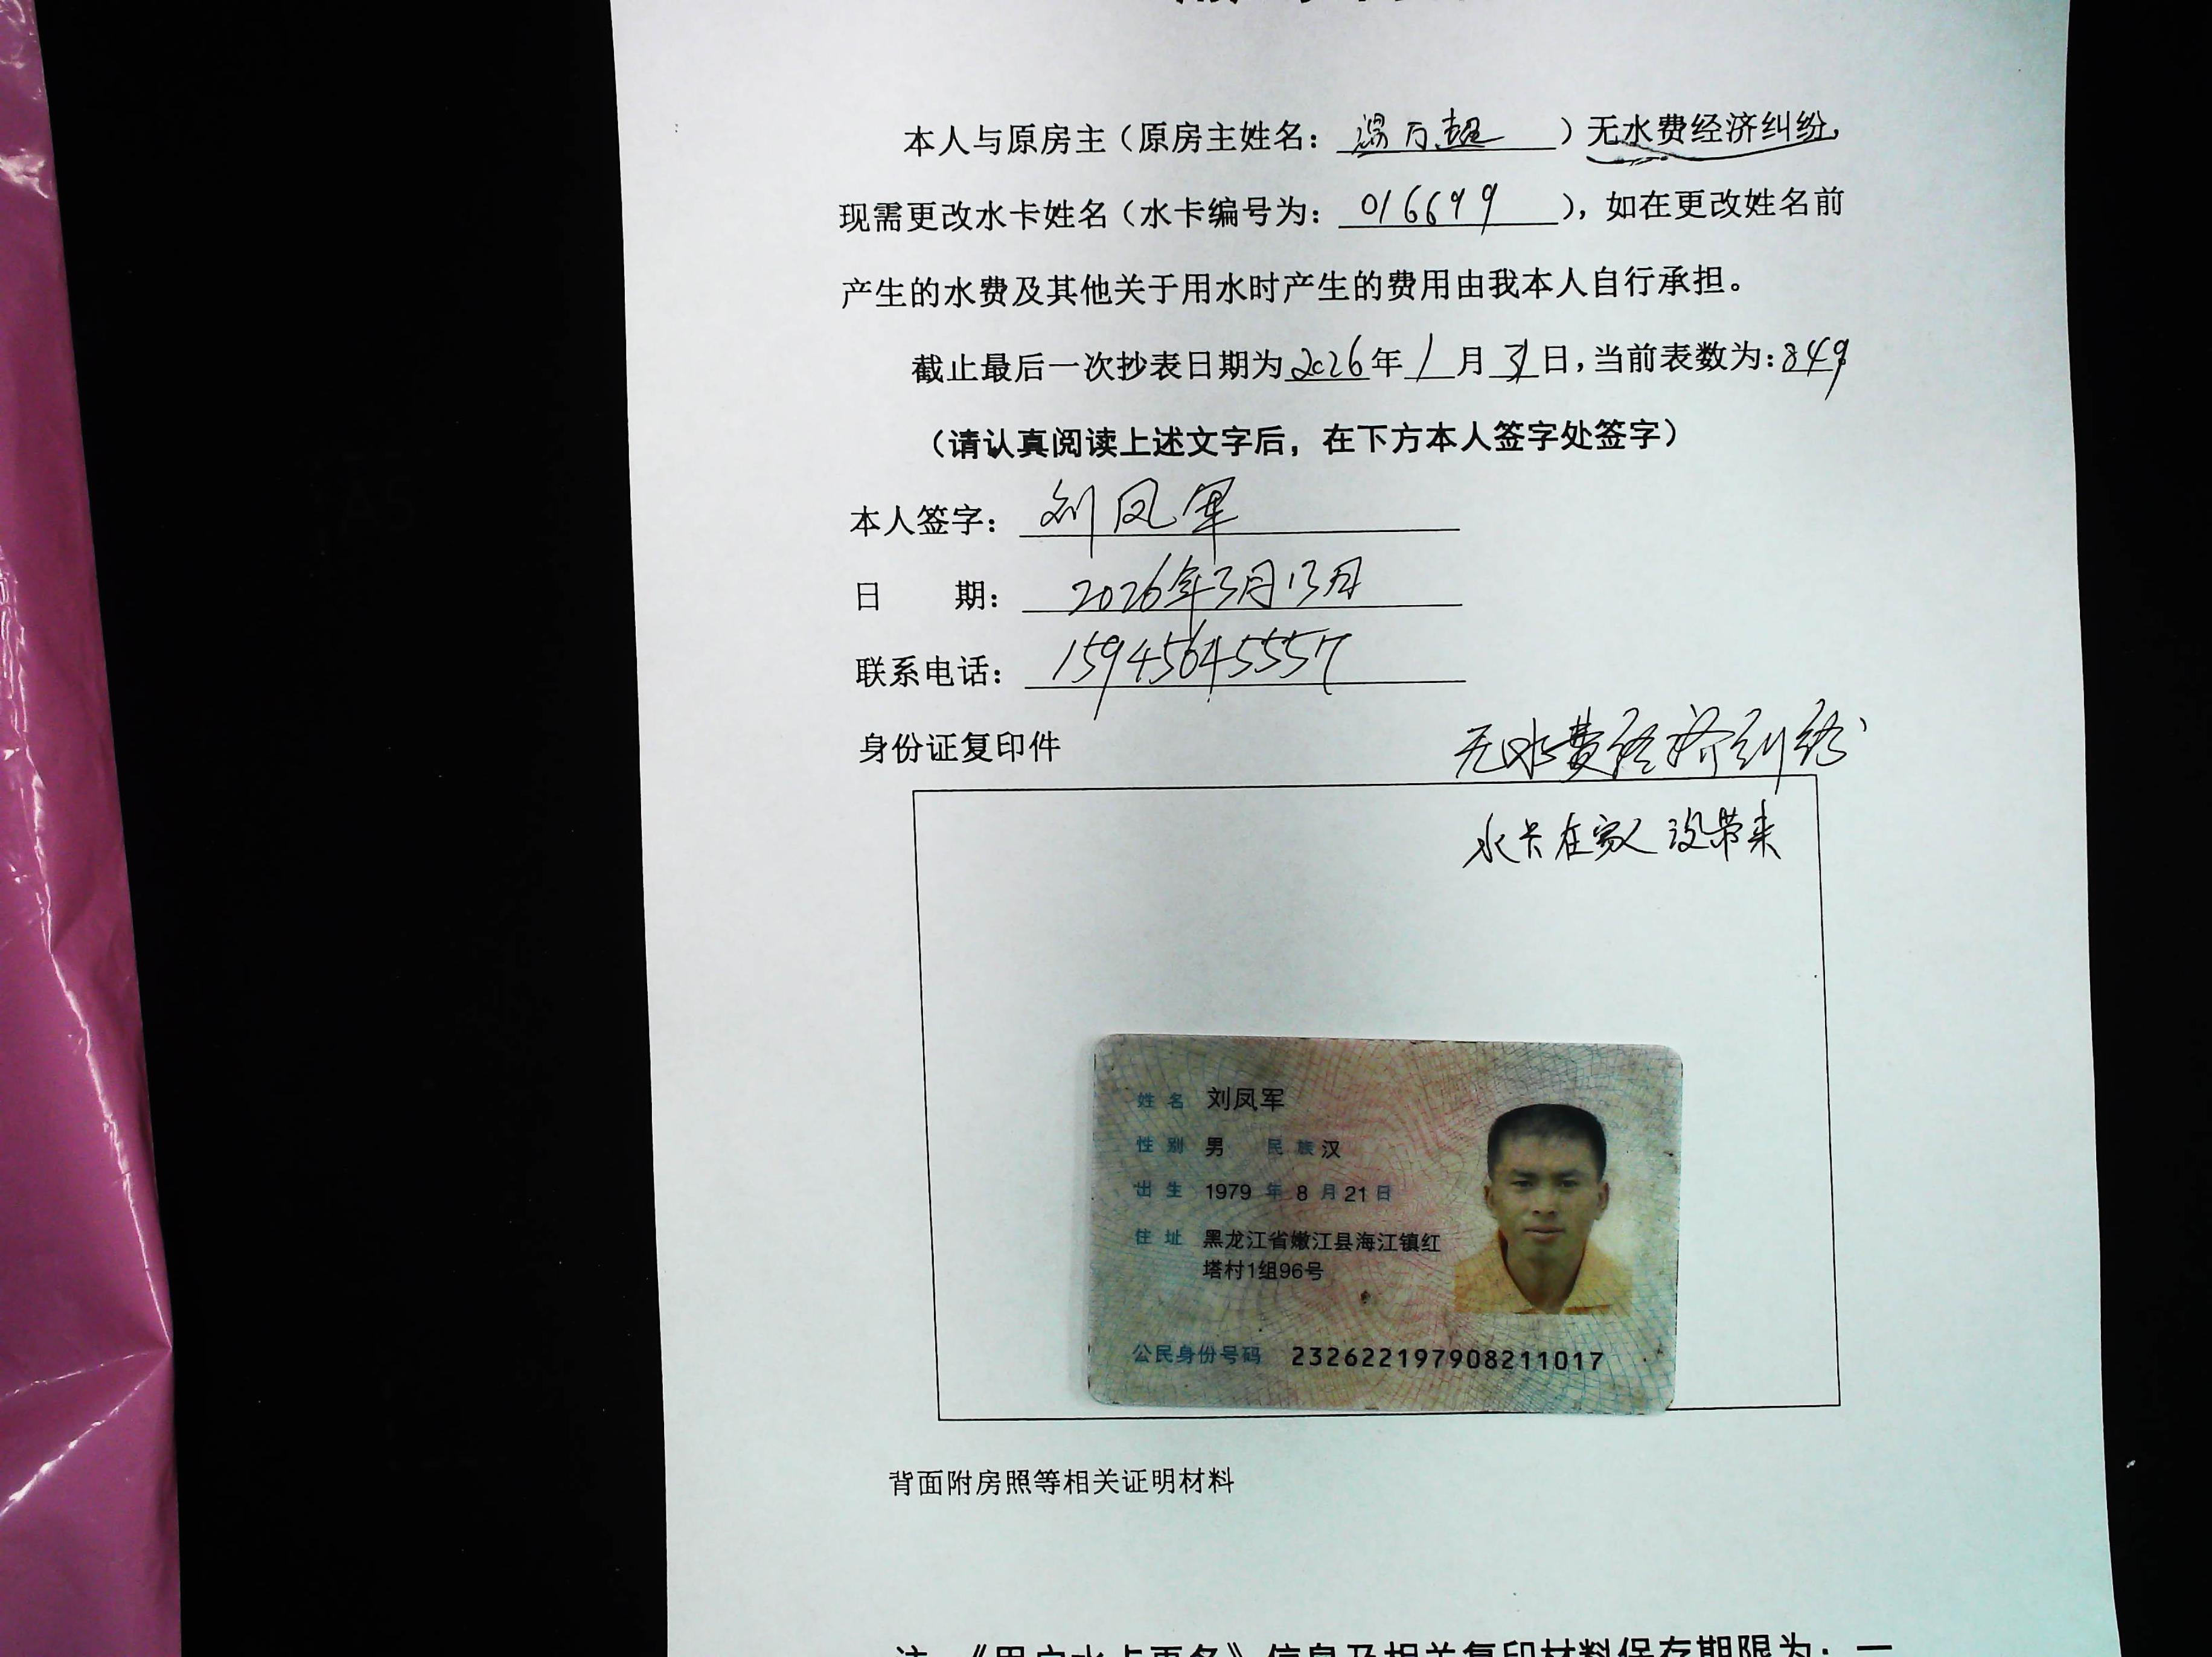 本人与原房主（原房主姓名：汤万超）无水费经济纠纷，
现需更改水卡姓名（水卡编号为：016699），如在更改姓名前
产生的水费及其他关于用水时产生的费用由我本人自行承担。
截止最后一次抄表日期为2026年1月31日，当前表数为：849
（请认真阅读上述文字后，在下方本人签字处签字）
本人签字：刘凤军
日 期：2026年3月13日
联系电话：15945645557
身份证复印件
无水费经济纠纷
水卡在家 没带来
姓名 刘凤军
性别 男 民族 汉
出生 1979 年 8 月 21 日
住址 黑龙江省嫩江县海江镇红
塔村1组96号
公民身份号码 232622197908211017
背面附房照等相关证明材料
注：《用户水卡更名》信息及相关复印材料保存期限为：一